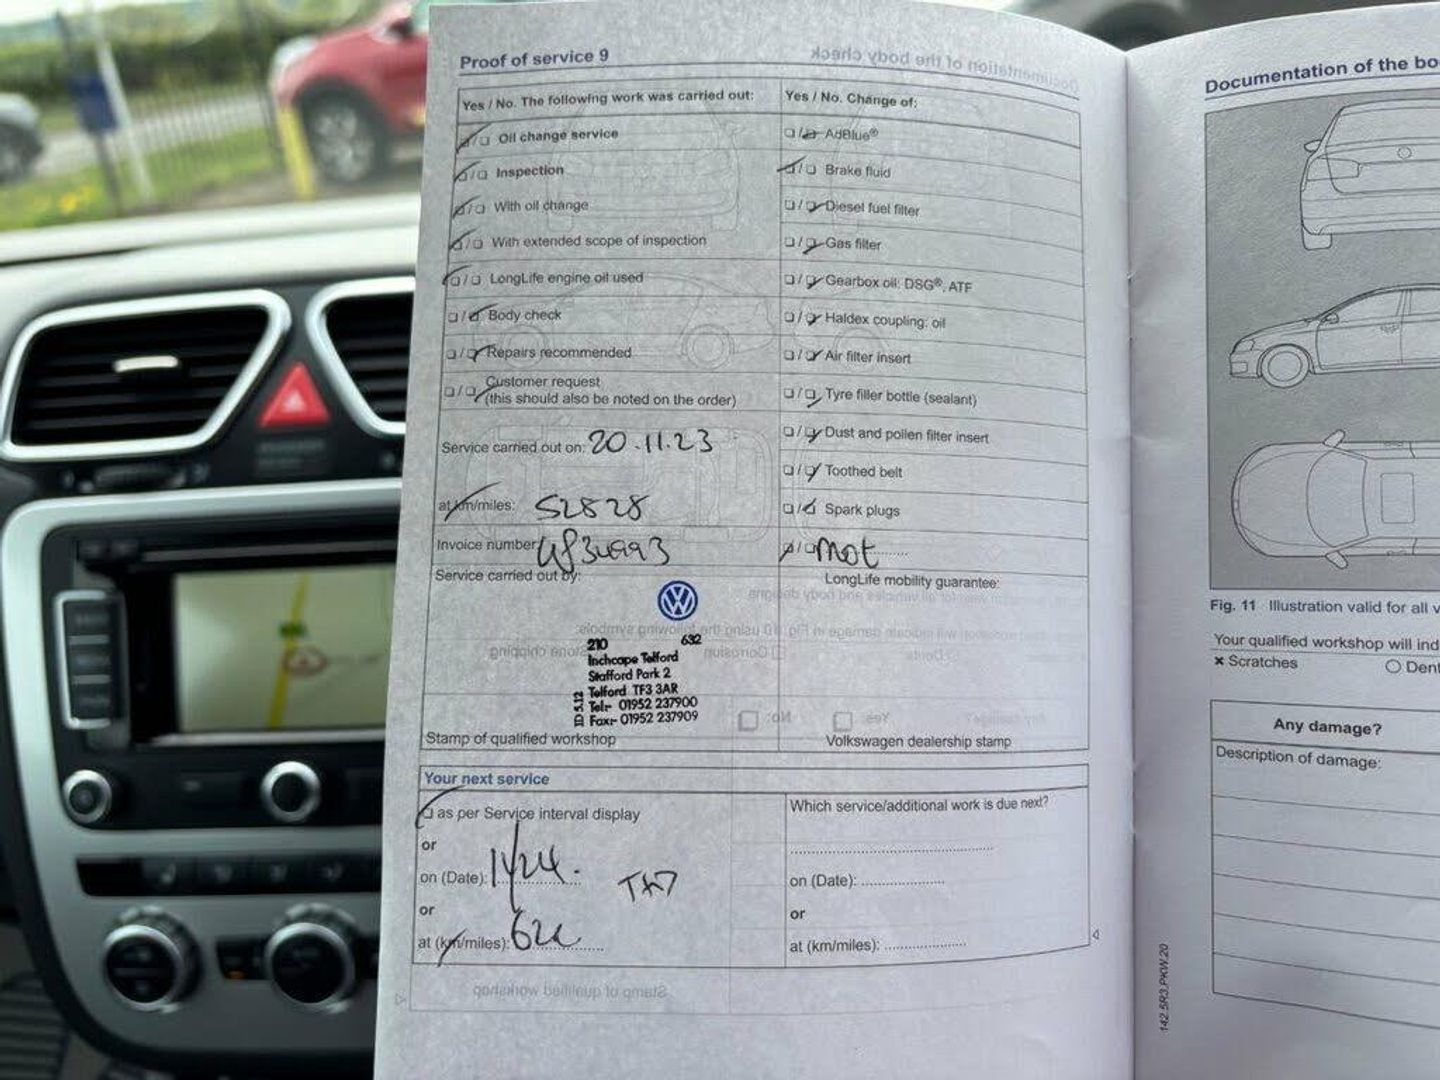 Proof of service 9
Yes / No. The following work was carried out:
Oil change service
Inspection
With oil change
With extended scope of inspection
LongLife engine oil used
Body check
Repairs recommended
Customer request
(this should also be noted on the order)
Service carried out on: 20.11.23
at km/miles: 52828
Invoice number:
Service carried out by:
210 632
Inchcape Telford
Stafford Park 2
Telford TF3 3AR
Tel:- 01952 237900
Fax:- 01952 237909
ID 5.12
Stamp of qualified workshop
Yes / No. Change of:
AdBlue®
Brake fluid
Diesel fuel filter
Gas filter
Gearbox oil: DSG®, ATF
Haldex coupling: oil
Air filter insert
Tyre filler bottle (sealant)
Dust and pollen filter insert
Toothed belt
Spark plugs
MOT
LongLife mobility guarantee:
Volkswagen dealership stamp
Your next service
as per Service interval display
or
on (Date):
or
at (km/miles):
Which service/additional work is due next?
on (Date):
or
at (km/miles):
Documentation of the bo
Fig. 11 Illustration valid for all v
Your qualified workshop will ind
× Scratches
Dent
Any damage?
Description of damage:
142.5R3.PKW.20